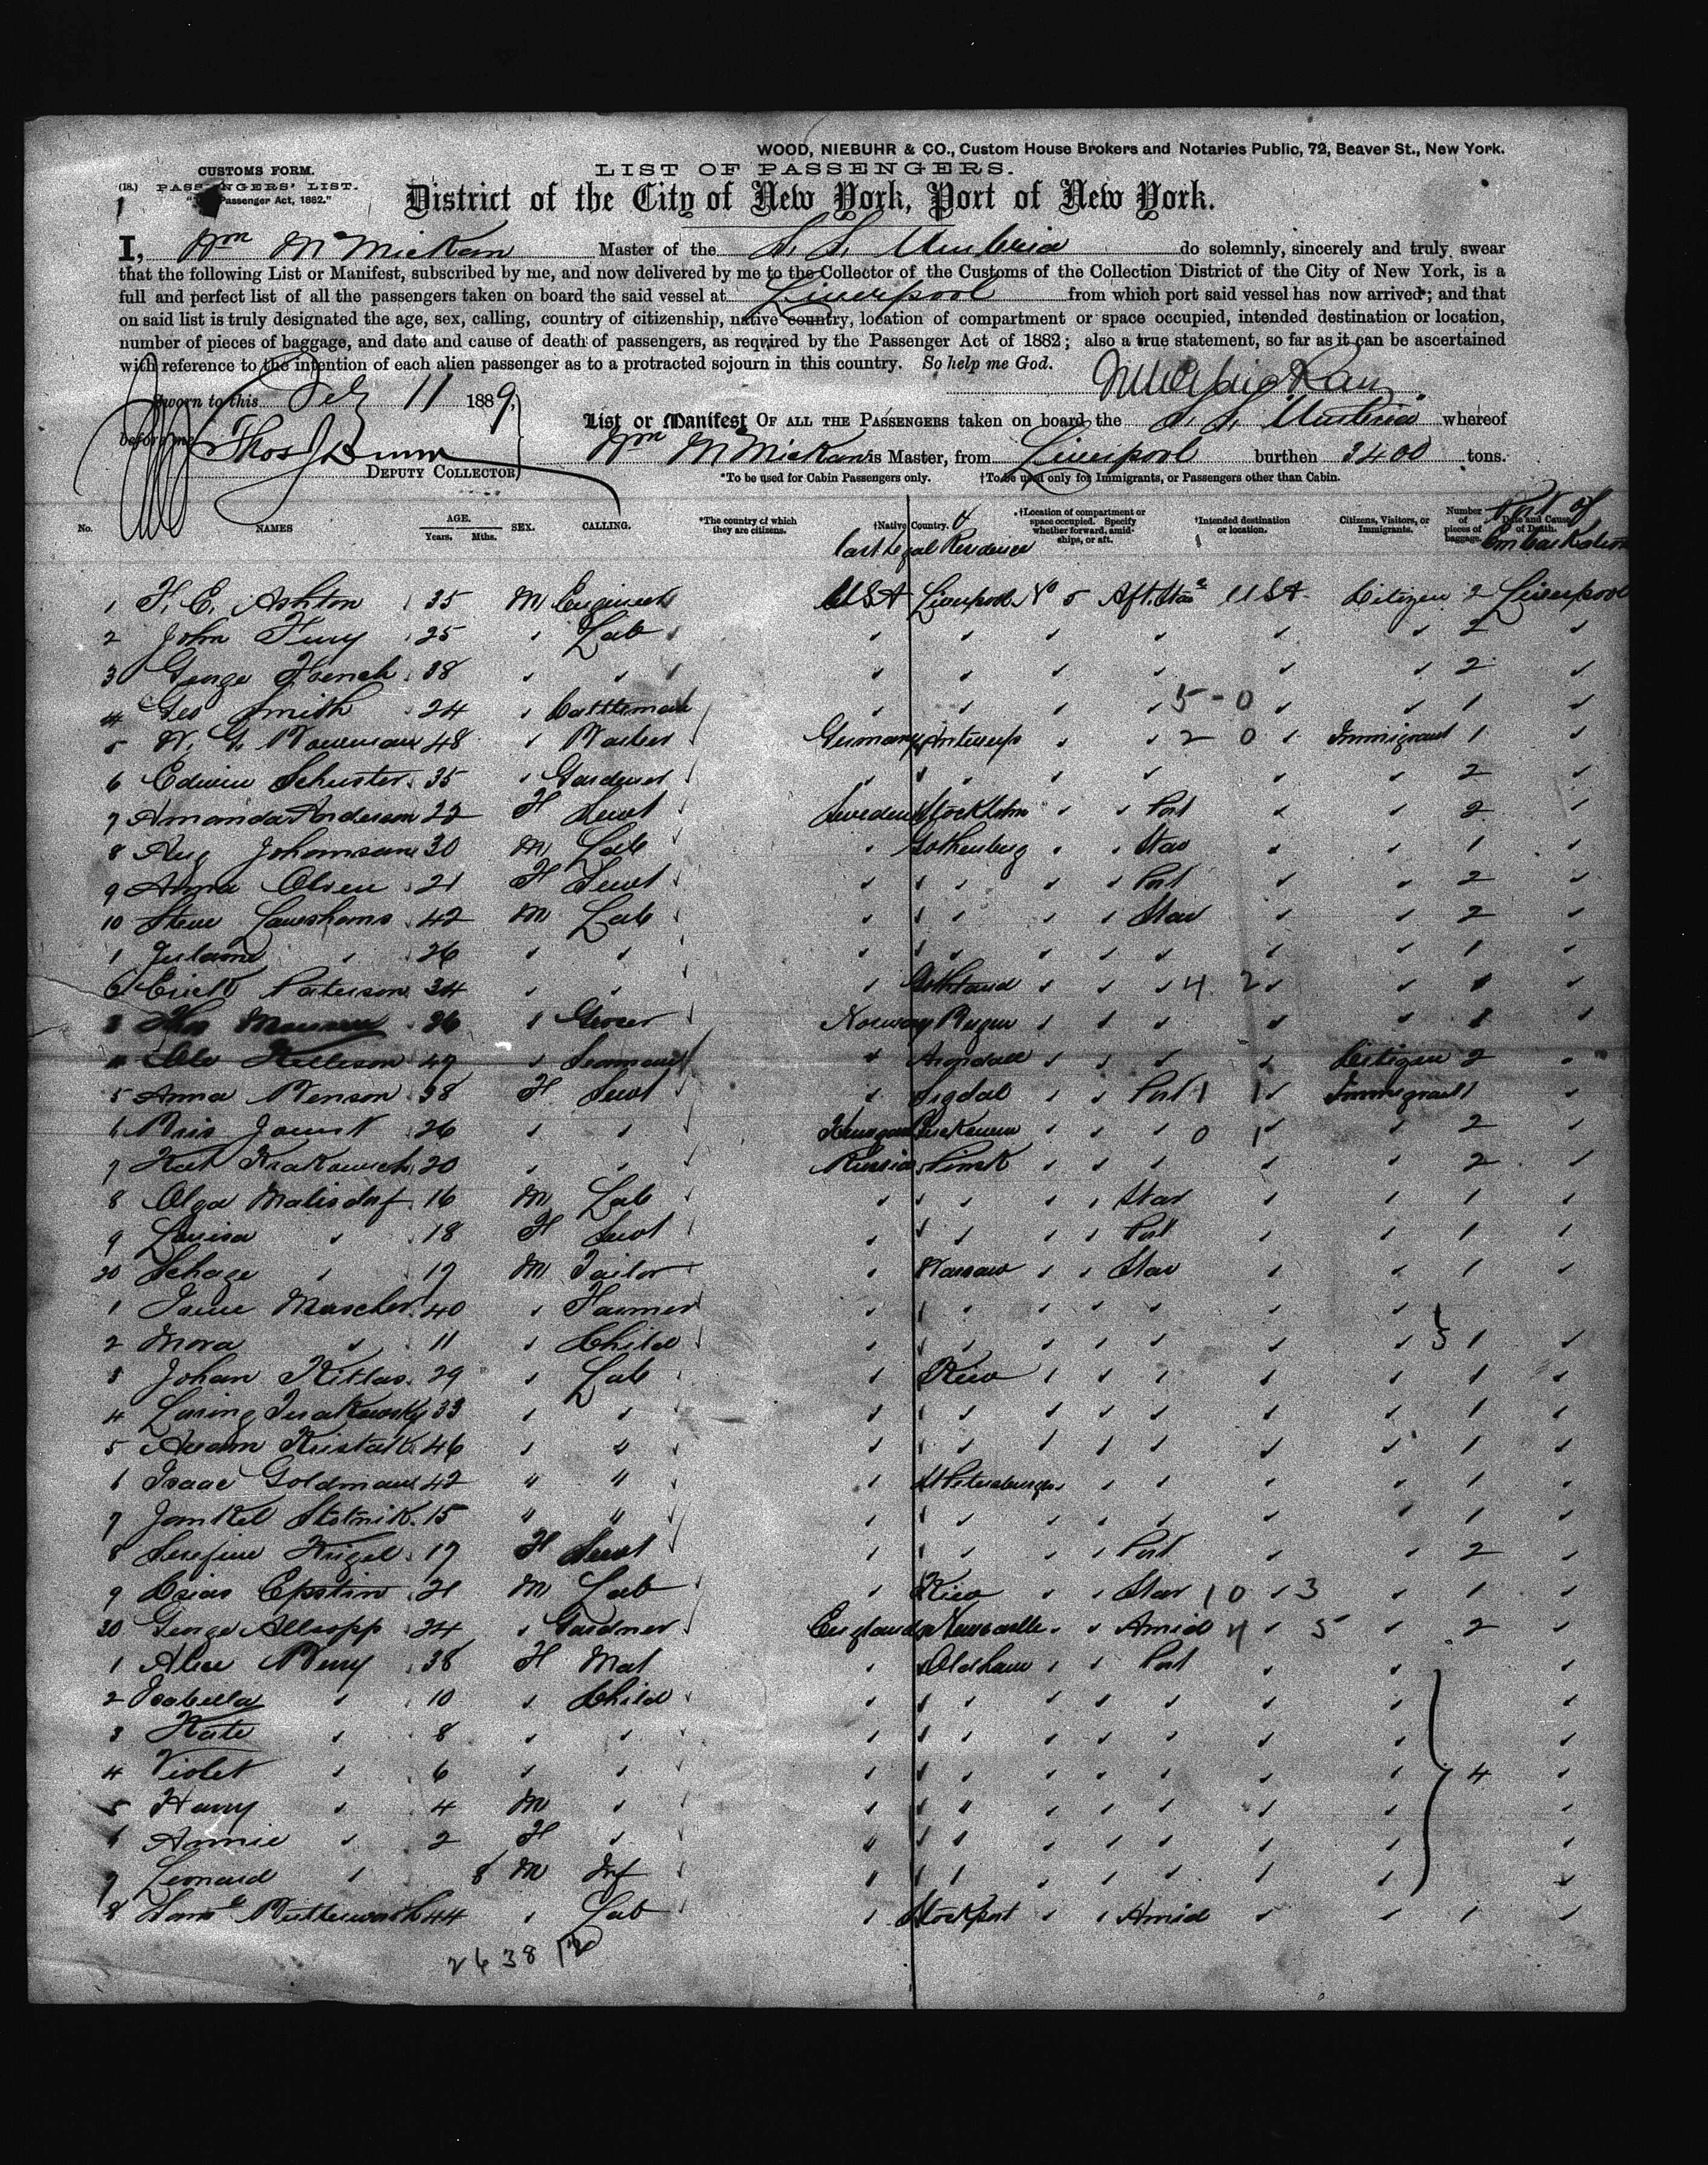 WOOD, NIEBUHR & CO., Custom House Brokers and Notaries Public, 72, Beaver St., New York.
CUSTOMS FORM.
LIST OF PASSENGERS.
(18.) PASSENGERS' LIST.
Passenger Act, 1882."
District of the City of New York, Port of New York.
I, Wm McMickan Master of the S. S. Umbria do solemnly, sincerely and truly swear
that the following List or Manifest, subscribed by me, and now delivered by me to the Collector of the Customs of the Collection District of the City of New York, is a
full and perfect list of all the passengers taken on board the said vessel at Liverpool from which port said vessel has now arrived; and that
on said list is truly designated the age, sex, calling, country of citizenship, native country, location of compartment or space occupied, intended destination or location,
number of pieces of baggage, and date and cause of death of passengers, as required by the Passenger Act of 1882; also a true statement, so far as it can be ascertained
with reference to the intention of each alien passenger as to a protracted sojourn in this country. So help me God.
Sworn to this Feb 11 1889,
before me Thos J Dunn
DEPUTY COLLECTOR
List or Manifest OF ALL THE PASSENGERS taken on board the S. S. Umbria whereof
Wm McMickan is Master, from Liverpool burthen 3400 tons.
*To be used for Cabin Passengers only. †To be used only for Immigrants, or Passengers other than Cabin.
No. NAMES AGE. Years. Mths. SEX. CALLING. *The country of which they are citizens. †Native Country. & last legal Residence †Location of compartment or space occupied. Specify whether forward, amidships, or aft. †Intended destination or location. Citizens, Visitors, or Immigrants. Number of pieces of baggage. Date and Cause of Death. Port of Embarkation
1 F. E. Ashton 35 M Engineer USA Liverpool No 5 Aft Star USA Citizen 2 Liverpool
2 John Fury 25 Lab 2
3 George French 38 2
4 Geo Smith 24 Cattleman 5-0 1
5 W. G. 48 Germany Antwerp 2 0 Immigrant 1
6 Edwin Schuster 35 Gardener 2
7 Amanda Anderson 22 F Servt Sweden Stockholm Port 2
8 Aug Johannsen 30 M Lab Gothenburg Star 1
9 Anna Olsen 21 F Servt Port 2
10 42 M Lab Star 2
1 26 1
2 Erick Paterson 34 4 2 1
3 26 Grocer Norway Bergen 1
4 Ole 49 Seaman Citizen 2
5 Anna Benson 38 F Servt Sigdal Port 1 1 Immigrant 1
6 26 0 1 2
7 20 Russia Pinsk 2
8 Olga Malisdorf 16 M Lab Star 1
9 Louisa 18 F Servt Port 1
20 Schage 19 M Tailor Warsaw Star 1
1 40 Farmer
2 Mora 11 Child 1
3 Johan Kitlas 29 Lab Kiew 1
4 33 1
5 46 1
6 Isaac Goldman 42 " " St Petersburg 1
7 Jankel Slotnik 15 " " 1
8 17 F Servt Port 2
9 Epstein 21 M Lab Kiew Star 1 0 3 1
30 George Allsopp 24 Gardner England Newcastle Amid 4 5 2
1 Alice Berry 38 F Mat Oldham Port
2 Isabella 10 Child
3 Kate 8
4 Violet 6 4
5 Harry 4 M
6 Annie 2 F
7 Leonard 8 M Inf
8 Saml Butterworth 44 Lab Stockport Amid 1
2638